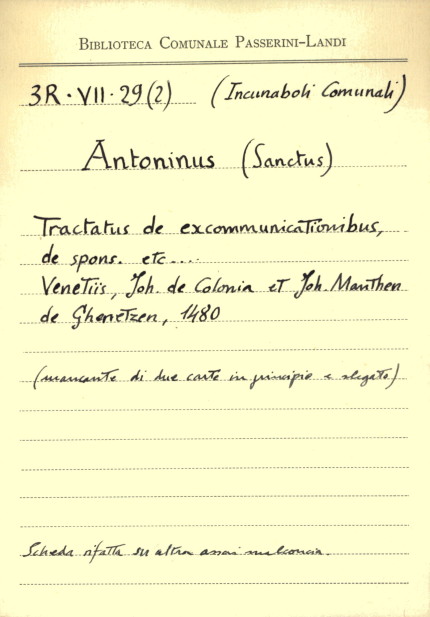 BIBLIOTECA COMUNALE PASSERINI-LANDI
3R·VII·29(2) (Incunaboli Comunali)
Antoninus (Sanctus)
Tractatus de excommunicationibus,
de spons. etc....
Venetiis, Joh. de Colonia et Joh. Manthen
de Ghenetzen, 1480
(mancante di due carte in principio e slegato)
Scheda rifatta su altra assai malconcia.